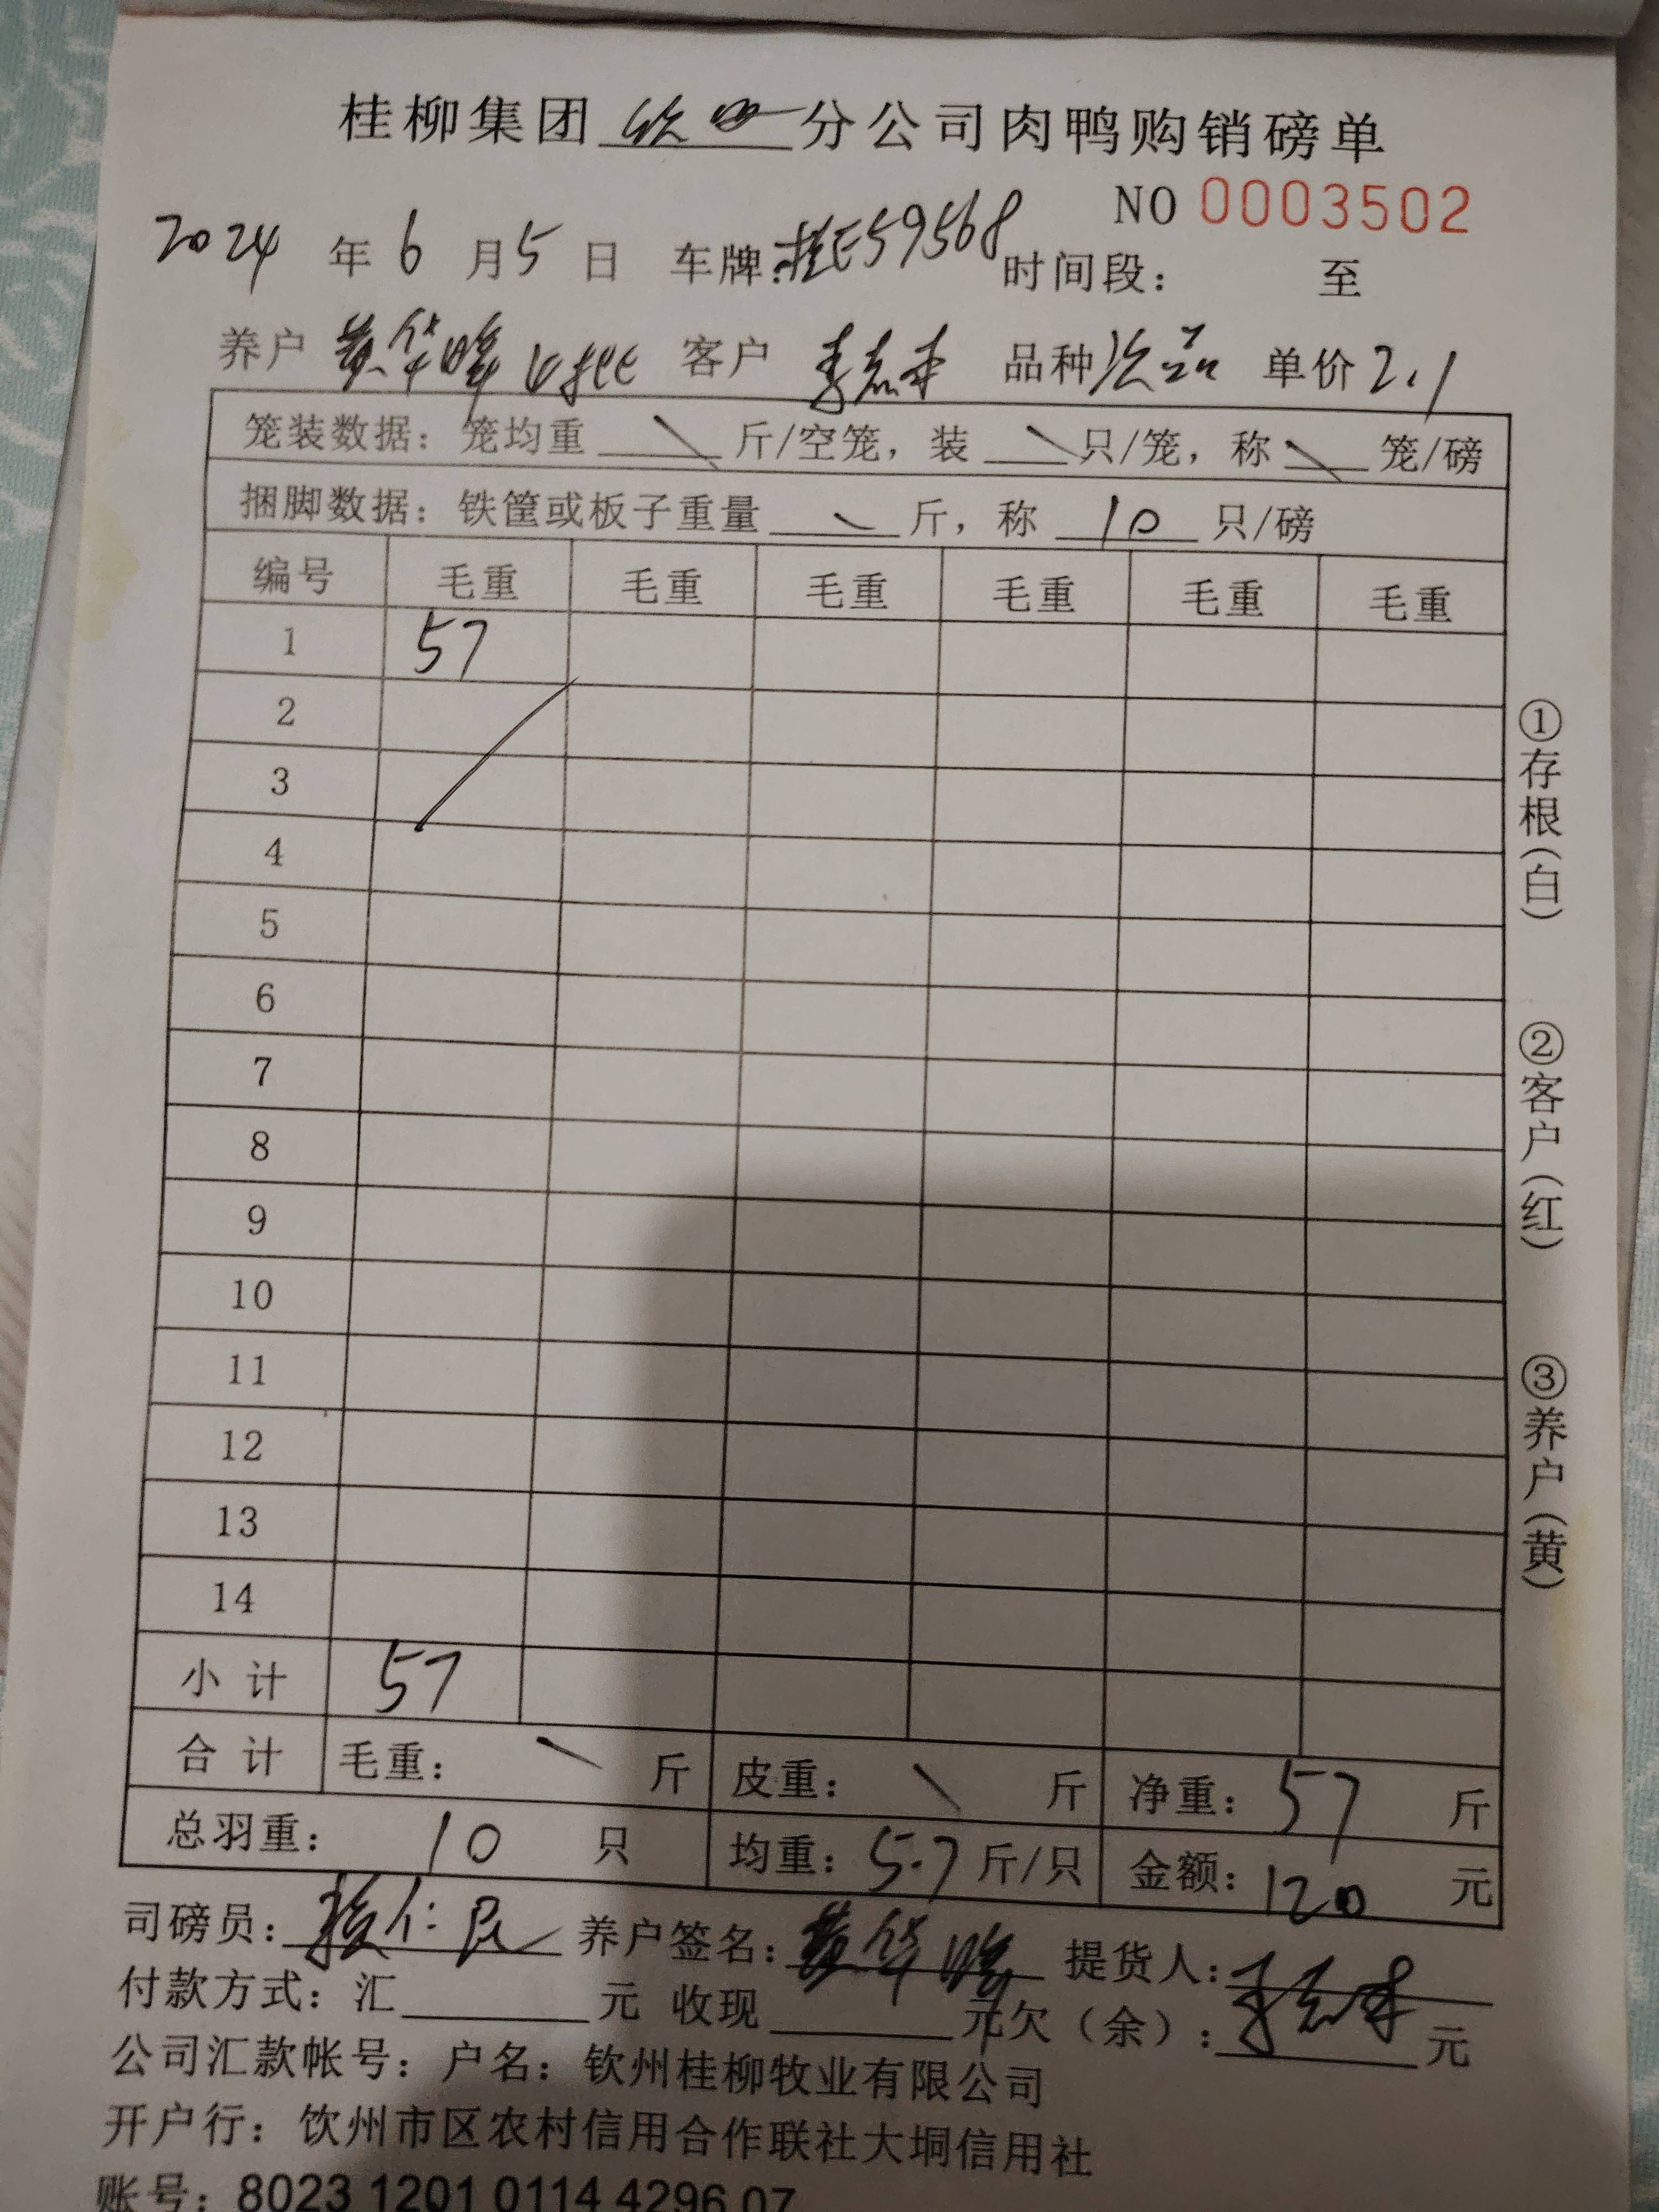 桂柳集团 钦州 分公司肉鸭购销磅单
NO 0003502
2024 年 6 月 5 日 车牌:桂E59568 时间段: 至
养户 黄华 客户 李志 品种 次品 单价 2.1
笼装数据: 笼均重 \ 斤/空笼, 装 \ 只/笼, 称 \ 笼/磅
捆脚数据: 铁筐或板子重量 \ 斤, 称 10 只/磅
编号 毛重 毛重 毛重 毛重 毛重 毛重
1 57
2
3
4
5
6
7
8
9
10
11
12
13
14
小计 57
合计 毛重: \ 斤 皮重: \ 斤 净重: 57 斤
总羽重: 10 只 均重: 5.7 斤/只 金额: 120 元
司磅员: 仁良 养户签名: 黄华 提货人: 李志
付款方式: 汇 元 收现 元 欠(余): 元
公司汇款帐号: 户名: 钦州桂柳牧业有限公司
开户行: 饮州市区农村信用合作联社大垌信用社
账号: 8023 1201 0114 4296 07
①存根(白)
②客户(红)
③养户(黄)